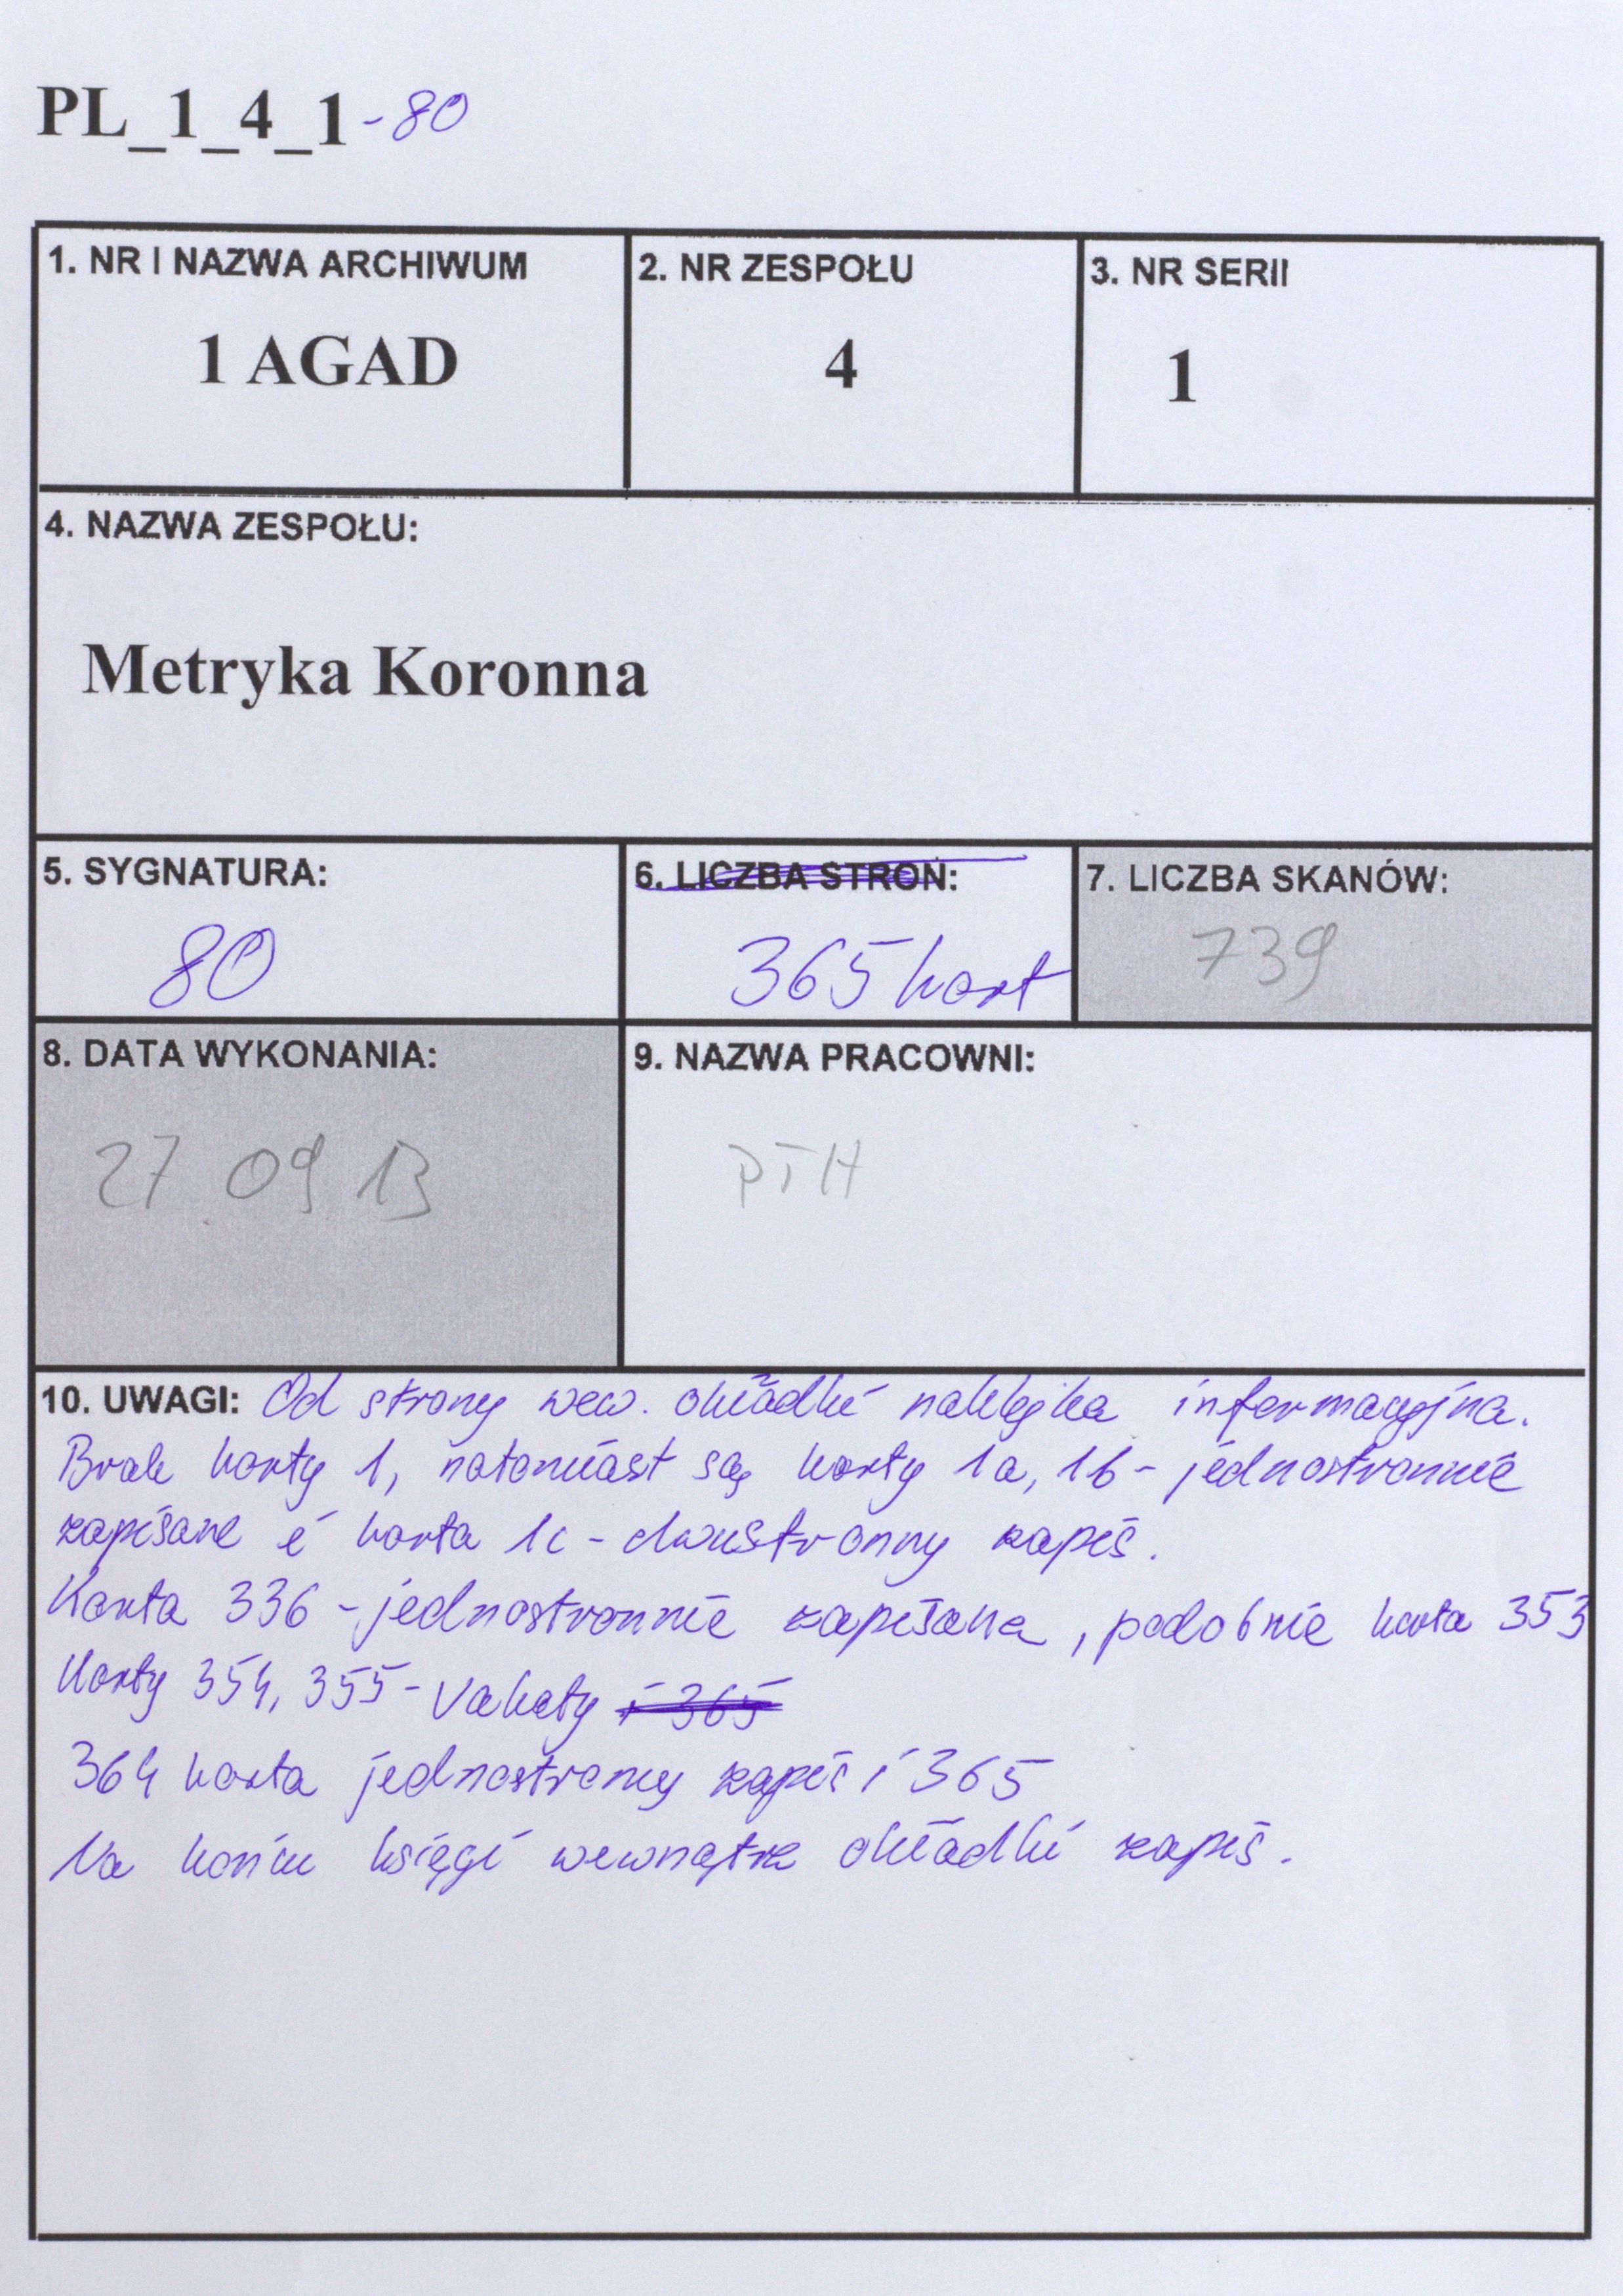 PL_1_4_1-80
1. NR I NAZWA ARCHIWUM
1 AGAD
2. NR ZESPOŁU
4
3. NR SERII
1
4. NAZWA ZESPOŁU:
Metryka Koronna
5. SYGNATURA:
80
6. LICZBA STRON:
365 kart
7. LICZBA SKANÓW:
739
8. DATA WYKONANIA:
27.09 13
9. NAZWA PRACOWNI:
PTH
10. UWAGI: Od strony wew. okładki naklejka informacyjna.
Brak karty 1, natomiast są karty 1a, 1b - jednostronnie
zapisane i karta 1c - dwustronny zapis.
Karta 336 - jednostronnie zapisana, podobnie karta 353
Karty 354, 355 - Vakaty i 365
364 karta jednostronny zapis i 365
Na końcu księgi wewnątrz okładki zapis.